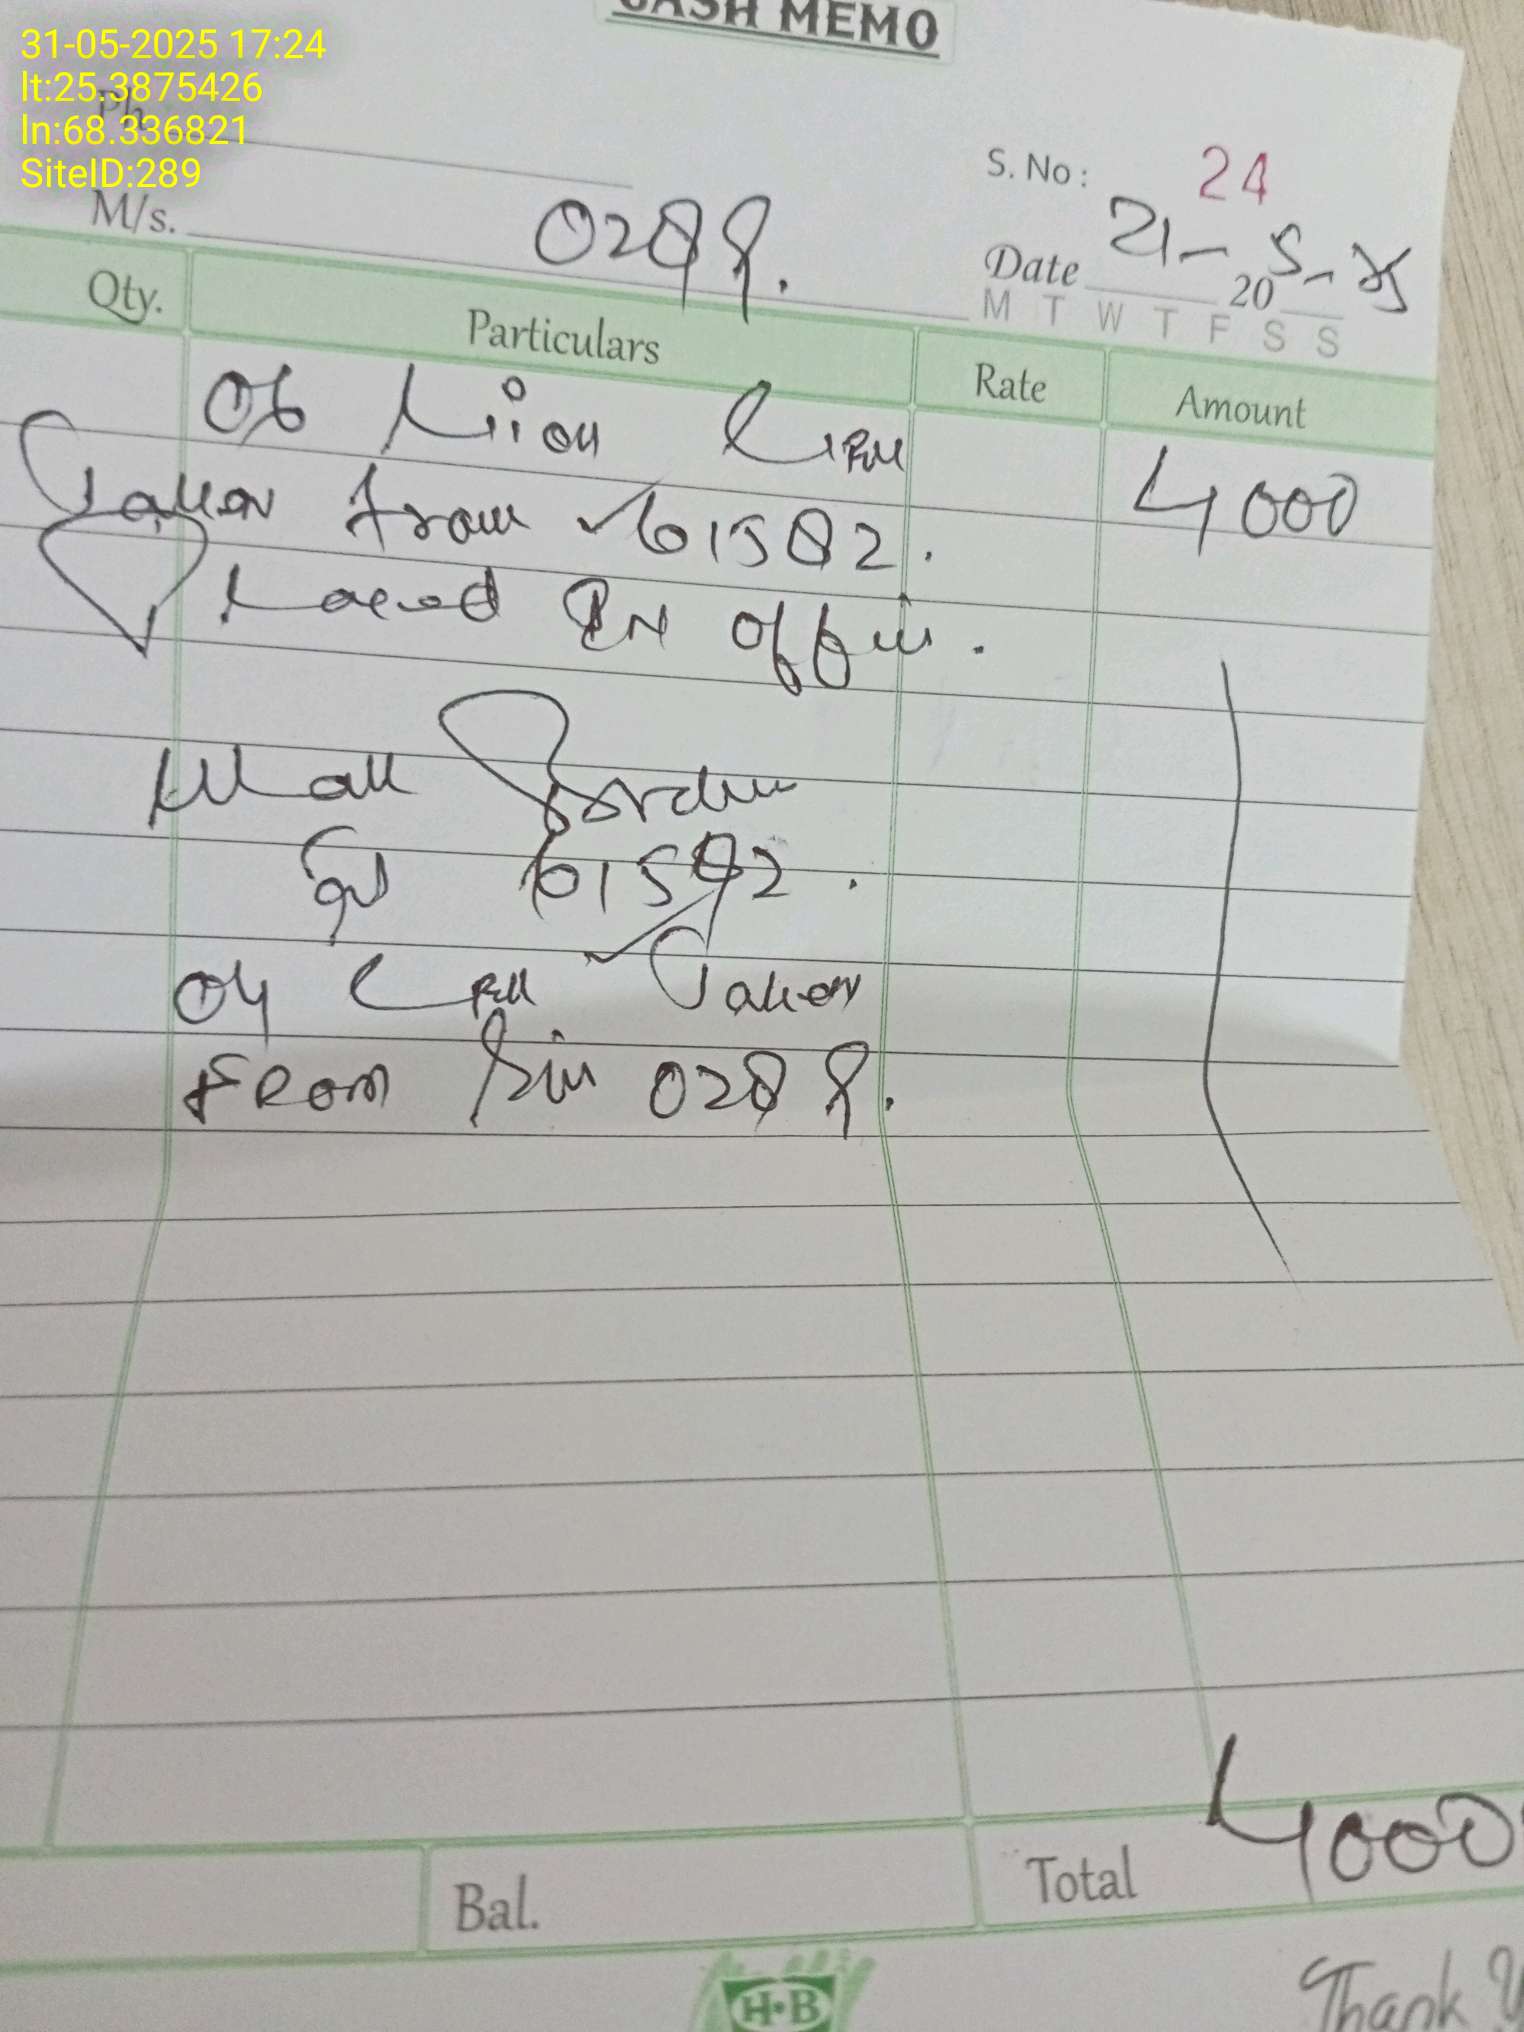 CASH MEMO
31-05-2025 17:24
lt:25.3875426
Ph
ln:68.336821
SiteID:289
S. No: 24
M/s. 0289.
Date 21-5-25
20
M T W T F S S
Qty. Particulars Rate Amount
06 Lion Cell 4000
Taken from 61582.
Placed in office.
61592.
04 Cell Taken
FROM Site 0289.
Bal. Total 4000
H·B
Thank